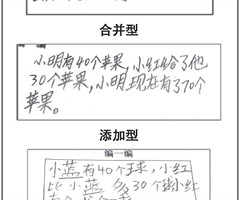 合并型
一编
小明有40个苹果,小红给了他
30个苹果,小明现在有了70个
苹果。
添加型
编一编
小蓝有40个球,小红
比小蓝多30个